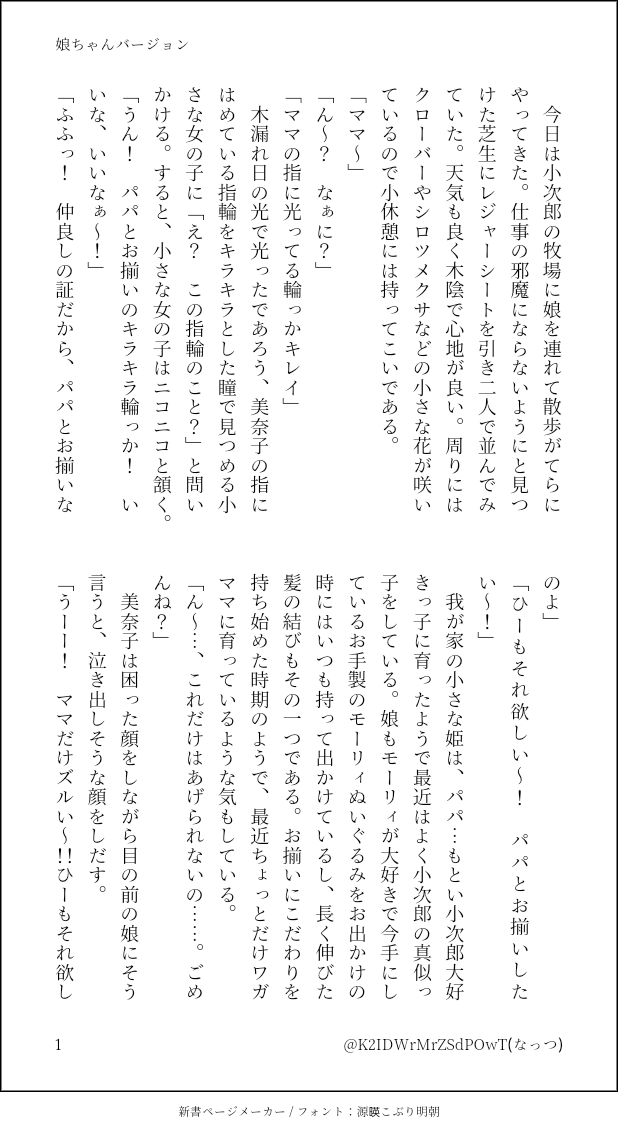 娘ちゃんバージョン
　今日は小次郎の牧場に娘を連れて散歩がてらに
やってきた。仕事の邪魔にならないようにと見つ
けた芝生にレジャーシートを引き二人で並んでみ
ていた。天気も良く木陰で心地が良い。周りには
クローバーやシロツメクサなどの小さな花が咲い
ているので小休憩には持ってこいである。
「ママ～」
「ん～？　なぁに？」
「ママの指に光ってる輪っかキレイ」
　木漏れ日の光で光ったであろう、美奈子の指に
はめている指輪をキラキラとした瞳で見つめる小
さな女の子に「え？　この指輪のこと？」と問い
かける。すると、小さな女の子はニコニコと頷く。
「うん！　パパとお揃いのキラキラ輪っか！　い
いな、いいなぁ～！」
「ふふっ！　仲良しの証だから、パパとお揃いな
のよ」
「ひーもそれ欲しい～！　パパとお揃いした
い～！」
　我が家の小さな姫は、パパ…もとい小次郎大好
きっ子に育ったようで最近はよく小次郎の真似っ
子をしている。娘もモーリィが大好きで今手にし
ているお手製のモーリィぬいぐるみをお出かけの
時にはいつも持って出かけているし、長く伸びた
髪の結びもその一つである。お揃いにこだわりを
持ち始めた時期のようで、最近ちょっとだけワガ
ママに育っているような気もしている。
「ん～…、これだけはあげられないの……。ごめ
んね？」
　美奈子は困った顔をしながら目の前の娘にそう
言うと、泣き出しそうな顔をしだす。
「うーー！　ママだけズルい～!!ひーもそれ欲し
1
@K2IDWrMrZSdPOwT(なっつ)
新書ページメーカー / フォント：源暎こぶり明朝